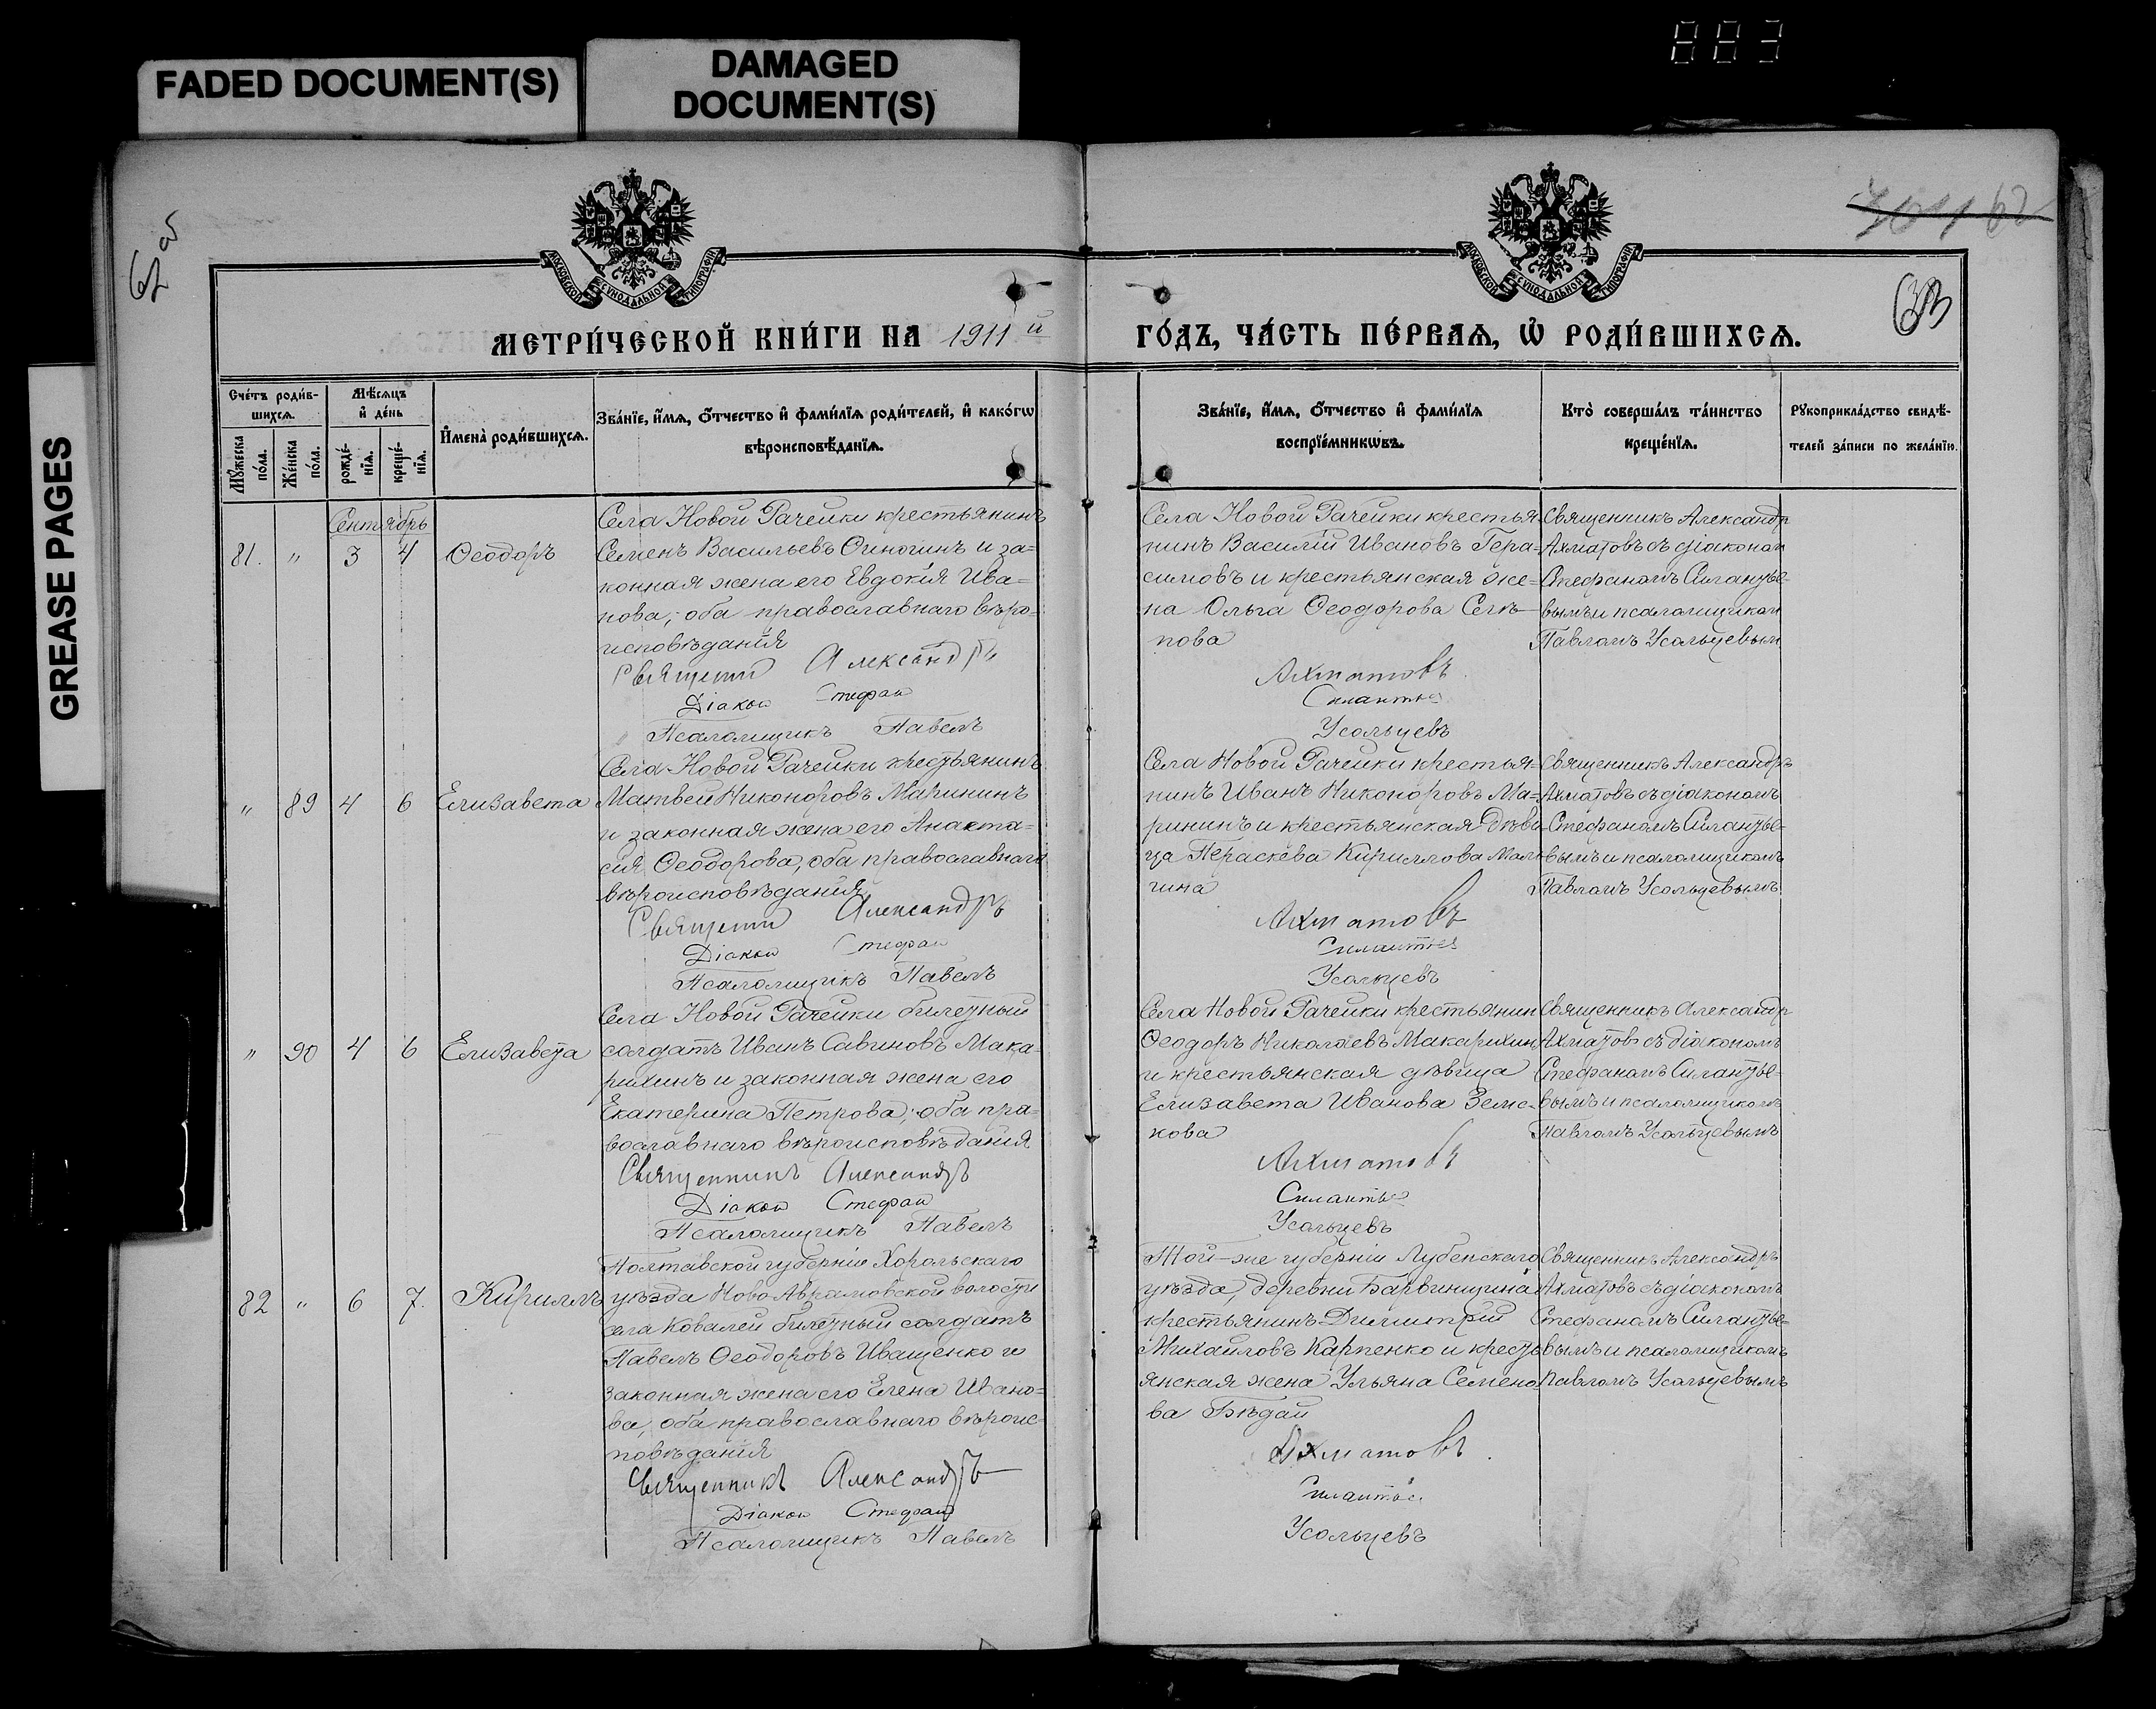 FADED DOCUMENT(S)
DAMAGED
DOCUMENT(S)
883
GREASE PAGES
62
63
МОСКОВСКОЙ СУНОДАЛЬНОЙ ТИПОГРАФІИ
МОСКОВСКОЙ СУНОДАЛЬНОЙ ТИПОГРАФІИ
МЕТРИ́ЧЕСКОЙ КНИ́ГИ НА 1911 й
ГО́ДЪ, ЧА́СТЬ ПЕ́РВАЯ, Ѡ РОДИ́ВШИХСЯ.
Сче́тъ роди́в-
шихся.
Мꙋ́жеска по́ла.
Же́нска по́ла.
Мѣ́сяцъ
и҆ де́нь
рожде́-
нїя.
креще́-
нїя.
И҆мена̀ роди́вшихся.
Зва́нїе, и҆́мя, ѻ҆́тчество и҆ фами́лїя роди́телей, и҆ како́гѡ
вѣроисповѣ́данїя.
Зва́нїе, и҆́мя, ѻ҆́тчество и҆ фами́лїя
воспрїе́мникѡвъ.
Кто̀ соверша́лъ та́инство
креще́нїя.
Рꙋкоприкла́дство свидѣ́-
телей за́писи по жела́нїю.
Сентябрь
81. " 3 4 Ѳеодоръ
Села Новой Рачейки крестьянинъ
Семенъ Васильевъ и за=
конная жена его Евдокія Ива=
нова, оба православнаго вѣро=
исповѣданія
Священни Александръ
Діакон Стефан
Псаломщикъ Павелъ
Села Новой Рачейки крестья-
нинъ Василій Ивановъ Гера-
симовъ и крестьянская же-
на Ольга Ѳеодорова
нова
Ахматовъ
Силантье
Усольцевъ
Священникъ Александръ
Ахматовъ съ діаконом
Стефаномъ Силантье-
вымъ и псаломщиком
Павломъ Усольцевым
" 89 4 6 Елизавета
Села Новой Рачейки крестьянинъ
Матвей Никоноровъ Маринин
и законная жена его Анаста=
сія Ѳеодорова, оба православнаго
вѣроисповѣданія
Священни Александръ
Діакон Стефан
Псаломщикъ Павелъ
Села Новой Рачейки крестья-
нинъ Иванъ Никоноровъ Ма-
рининъ и крестьянская дѣви
ца Параскева Кириллова
гина
Ахматовъ
Силантьев
Усольцевъ
Священникъ Александръ
Ахматовъ съ діакономъ
Стефаномъ Силантье=
вымъ и псаломщикомъ
Павломъ Усольцевымъ
" 90 4 6 Елизавета
Села Новой Рачейки билетный
солдатъ Иванъ Савиновъ Мака-
рихинъ и законная жена его
Екатерина Петрова, оба пра=
вославнаго вѣроисповѣданія
Священникъ Александръ
Діакон Стефан
Псаломщикъ Павелъ
Села Новой Рачейки крестьянин
Ѳеодоръ Николаевъ Макарихин
и крестьянская дѣвица
Елизавета Иванова Земс-
кова
Ахматовъ
Силантье
Усольцевъ
Священникъ Александр
Ахматовъ съ діакономъ
Стефаномъ Силантье-
вымъ и псаломщикомъ
Павломъ Усольцевымъ
82 " 6 7. Кириллъ
Полтавской губерніи Хорольскаго
уѣзда Ново Аврамовской волости
села Ковалей билетный солдатъ
Павелъ Ѳеодоровъ Иващенко и
законная жена его Елена Ивано=
ва, оба православнаго вѣроис-
повѣданія
Священникъ Александръ
Діакон Стефан
Псаломщикъ Павелъ
Той-же губерніи Лубенскаго
уѣзда, деревни Барвинщина
крестьянинъ Димитрій
Михайловъ Карпенко и кресть
янская жена Ульяна Семено
ва Бѣдай
Ахматовъ.
Силантье
Усольцевъ
Священникъ Александръ
Ахматовъ съ діакономъ
Стефаномъ Силантье=
вымъ и псаломщикомъ
Павломъ Усольцевымъ